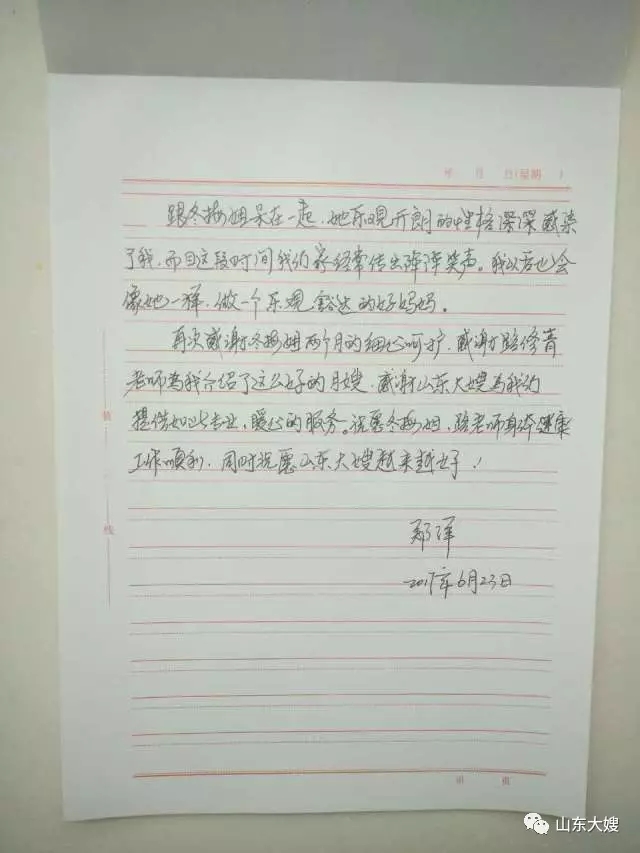 年 月 日(星期 )
跟冬梅姐呆在一起,她乐观开朗的性格深深感染
了我,而且这段时间我们家经常传出阵阵笑声。我以后也会
像她一样,做一个乐观豁达的好妈妈。
再次感谢冬梅姐两个月的细心呵护,感谢路修菁
老师为我介绍了这么好的月嫂,感谢山东大嫂为我们
提供如此专业,暖心的服务。祝愿冬梅姐,路老师身体健康
工作顺利,同时祝愿山东大嫂越来越好!
装
线
郑洋
2017年6月23日
第 页
山东大嫂